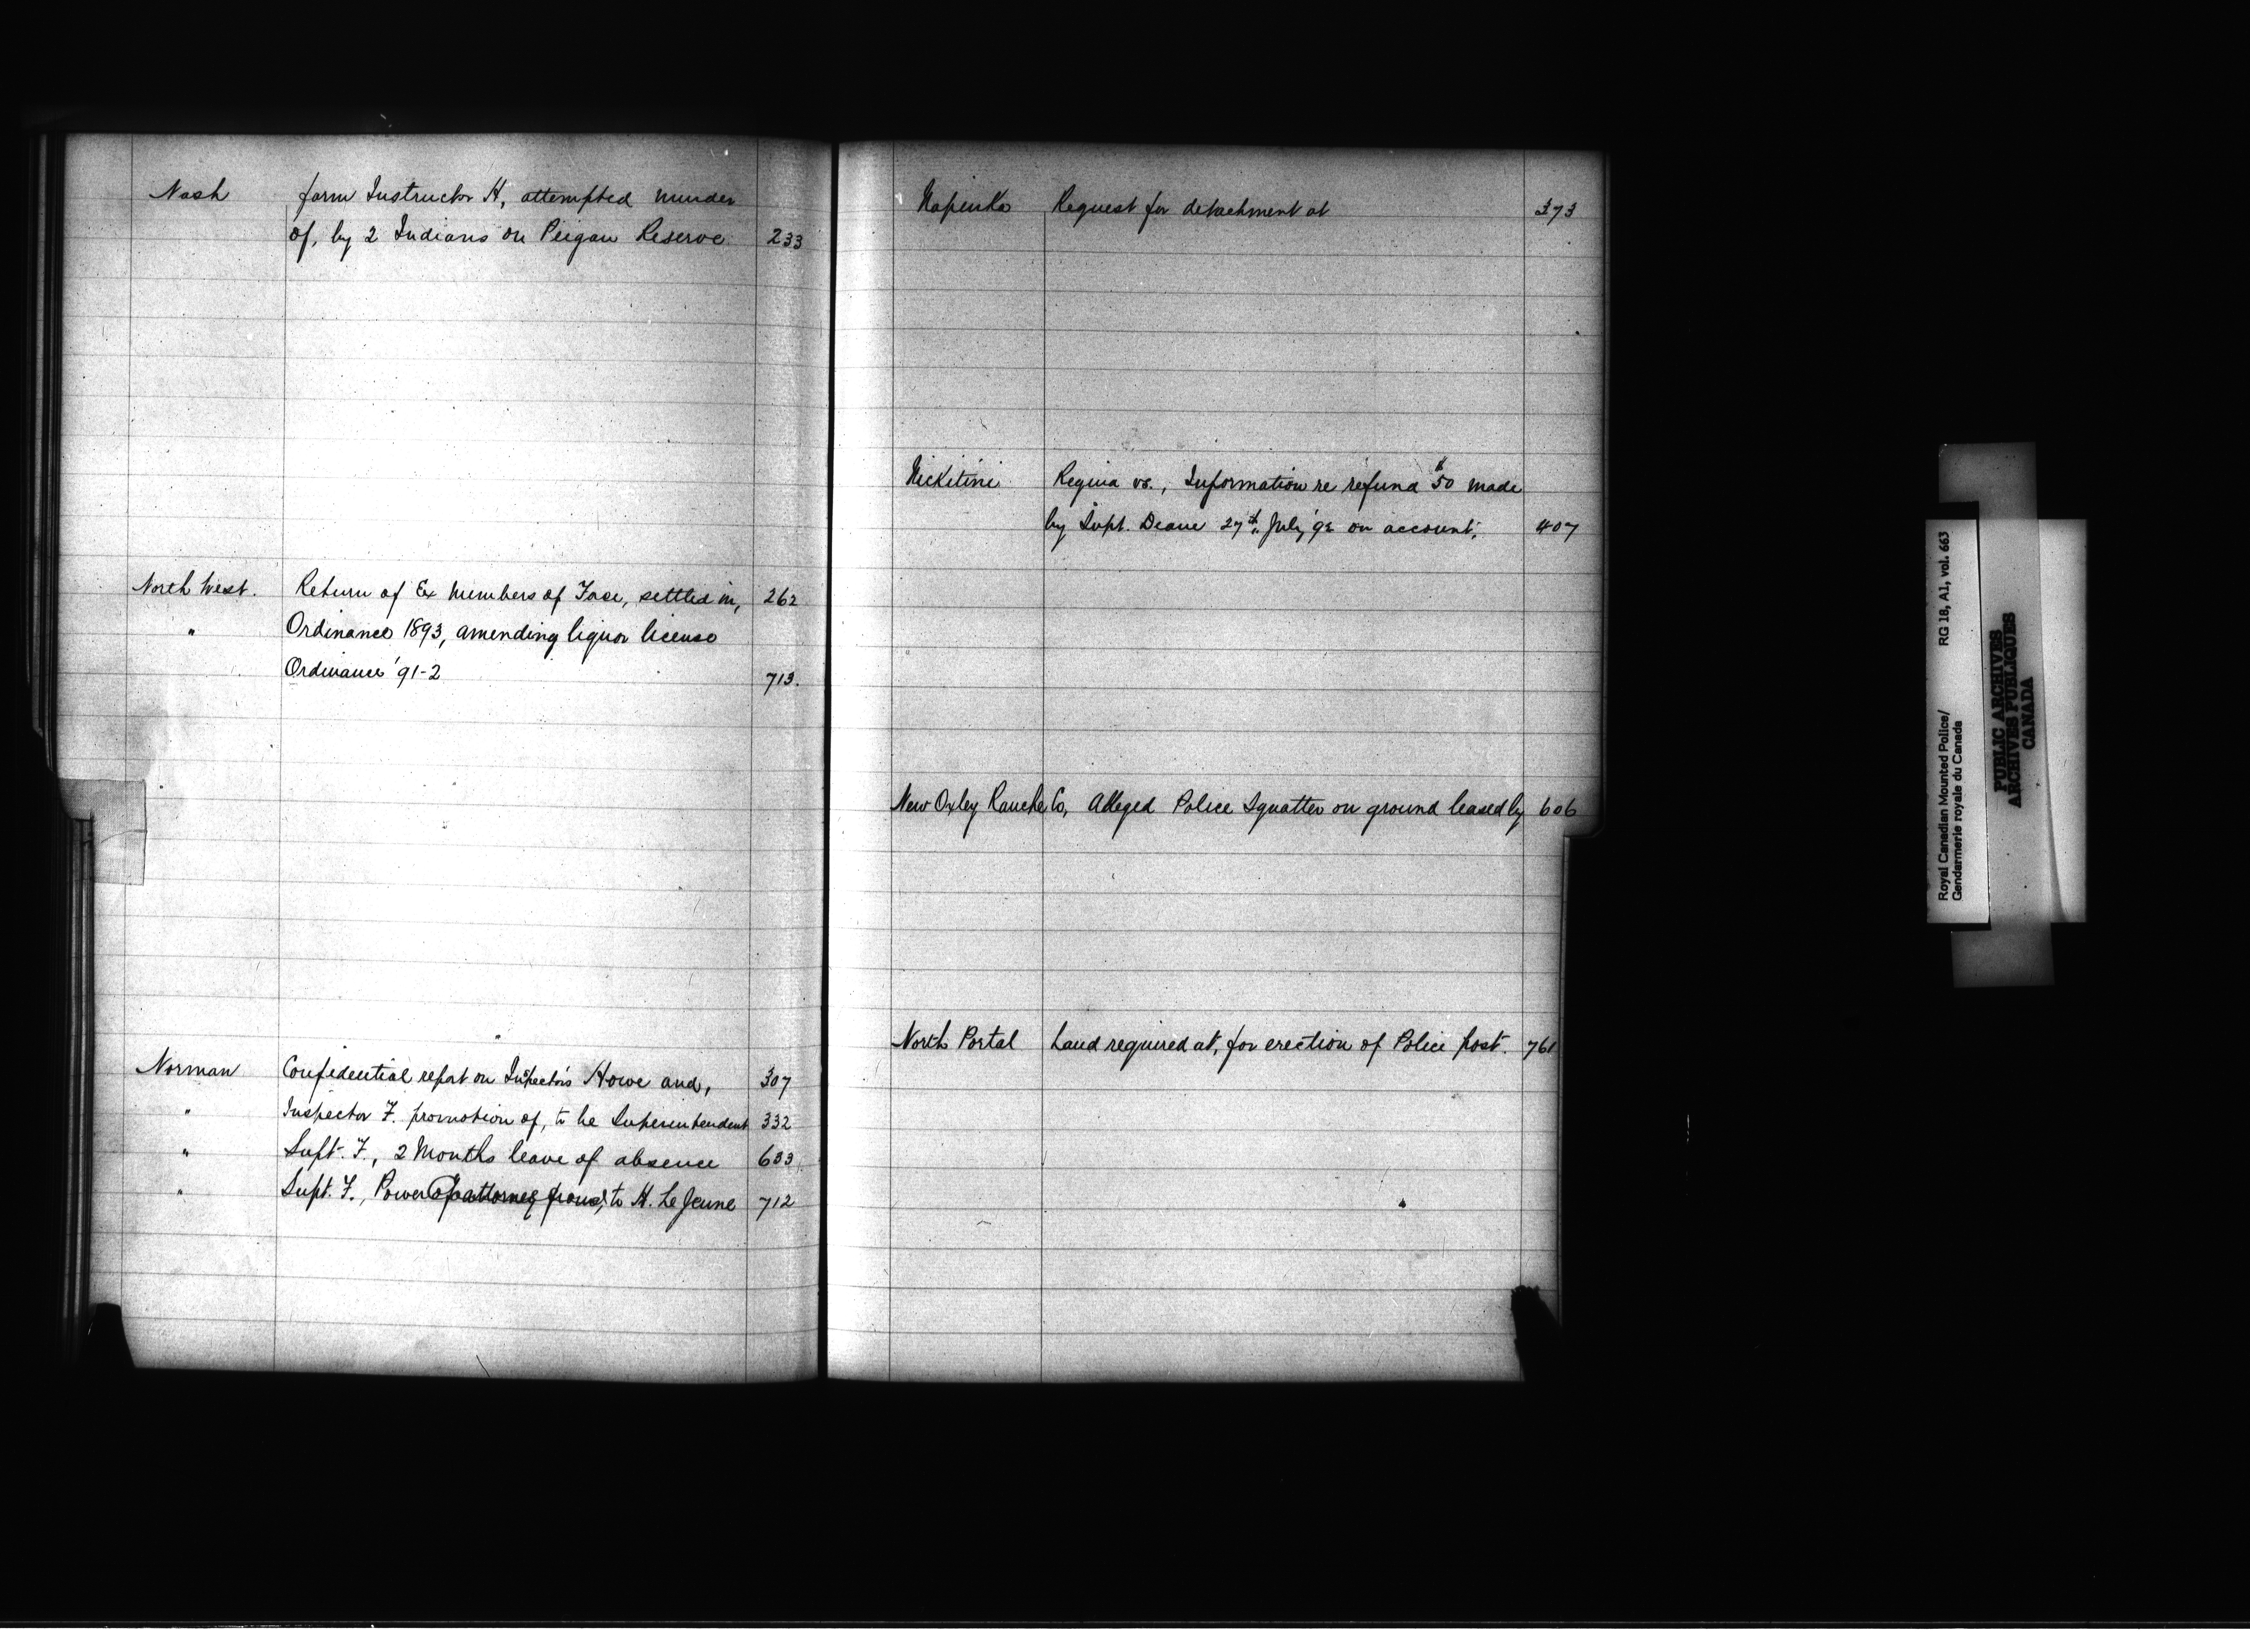 Nash farm Instructor H, attempted murder
of, by 2 Indians on Peigan Reserve. 233
North West. Return of Ex Members of Force, settled in, 262
" Ordinance 1893, amending liquor license
Ordinance '91-2 713.
Norman Confidential report on Inspectors Howe and, 307
" Inspector F. promotion of, to be Superintendent 332
" Supt. F., 2 Months leave of absence 633
" Supt. F., Power of attorney from, to H. Le Jeune 712
Napinka Request for detachment at 373
Nicketini Regina vs., Information re refund $50 made
by Supt. Deane 27th July '92 on account. 407
New Oxley Ranche Co, Alleged Police Squatter on ground leased by 606
North Portal Land required at, for erection of Police post. 761
Royal Canadian Mounted Police/ RG 18, A1, vol. 663
Gendarmerie royale du Canada
PUBLIC ARCHIVES
ARCHIVES PUBLIQUES
CANADA